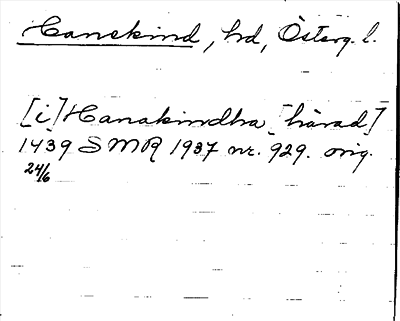 Hanekind, hd, Österg. l.
[i] Hanakindha [härad]
1439 SMR 1937 nr. 929. orig.
24/6